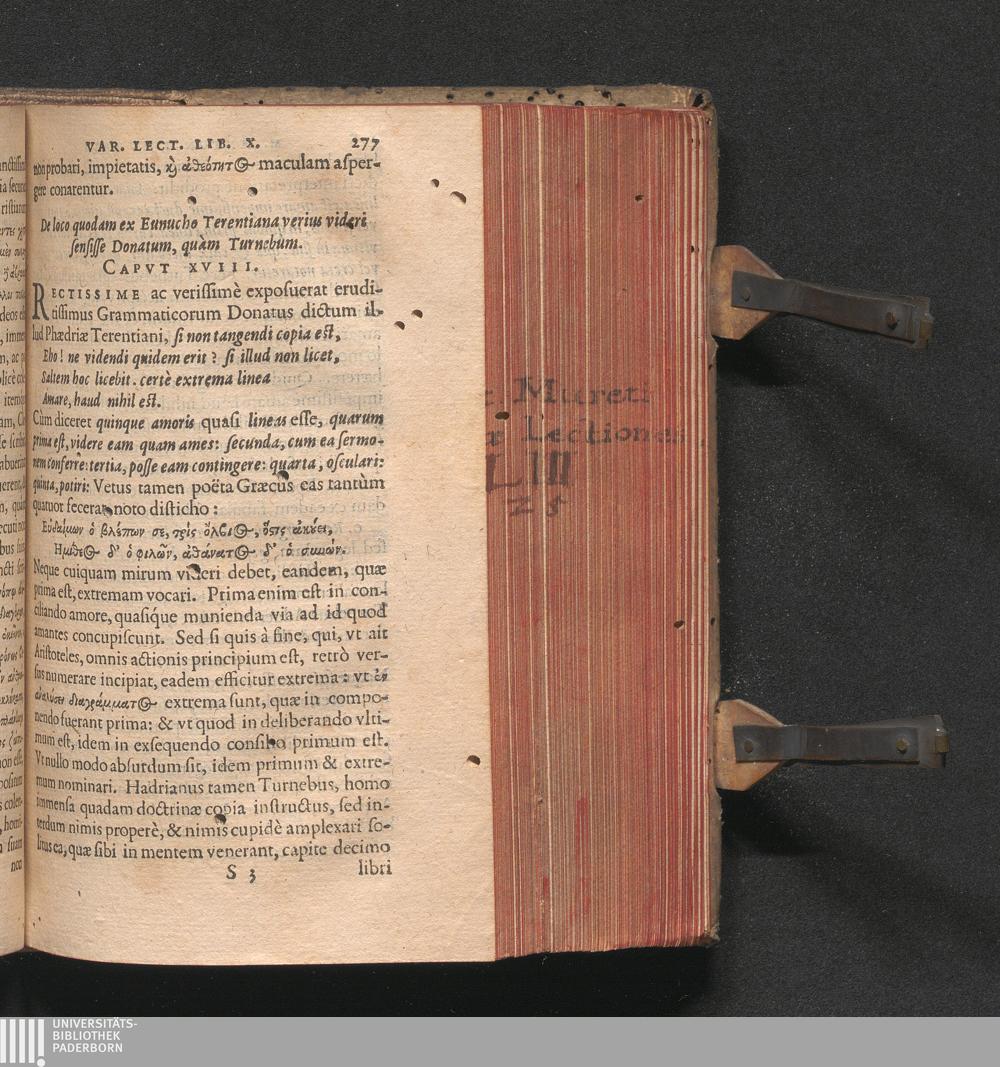 VAR. LECT. LIB. X. 277
non probari, impietatis, ϗ̀ ἀθεότητ⊙ maculam aſper-
gere conarentur.
De loco quodam ex Eunucho Terentiana verius videri
ſenſiſſe Donatum, quàm Turnebum.
CAPVT XVIII.
RECTISSIME ac veriſſimè expoſuerat erudi-
tiſſimus Grammaticorum Donatus dictum il-
lud Phædriæ Terentiani, ſi non tangendi copia eſt,
Eho! ne videndi quidem erit? ſi illud non licet,
Saltem hoc licebit. certè extrema linea
Amare, haud nihil eſt.
Cùm diceret quinque amoris quaſi lineas eſſe, quarum
prima eſt, videre eam quam ames: ſecunda, cum ea ſermo-
nem conferre: tertia, poſſe eam contingere: quarta, oſculari:
quinta, potiri: Vetus tamen poëta Græcus eas tantùm
quatuor fecerat, noto diſticho:
Εὐδαίμων ὁ βλέπων σε, τρὶς ὄλβι⊙, ὅστις ἀκούει,
Ἡμίθε⊙ δ' ὁ φιλῶν, ἀθάνατ⊙ δ' ὁ συνών.
Neque cuiquam mirum videri debet, eandem, quæ
prima eſt, extremam vocari. Prima enim eſt in con-
ciliando amore, quaſíque munienda via ad id quod
amantes concupiſcunt. Sed ſi quis à fine, qui, vt ait
Ariſtoteles, omnis actionis principium eſt, retrò ver-
ſus numerare incipiat, eadem efficitur extrema: vt ἐν
ἀναλύσει διαγράμματ⊙ extrema ſunt, quæ in compo-
nendo fuerant prima: & vt quod in deliberando vlti-
mum eſt, idem in exſequendo conſilio primum eſt.
Vt nullo modo abſurdum ſit, idem primum & extre-
mum nominari. Hadrianus tamen Turnebus, homo
immenſa quadam doctrinæ copia inſtructus, ſed in-
terdum nimis properè, & nimis cupidè amplexari ſo-
litus ea, quæ ſibi in mentem venerant, capite decimo
S 3 libri
Mureti
Lectiones
LIII
25
UNIVERSITÄTS-
BIBLIOTHEK
PADERBORN